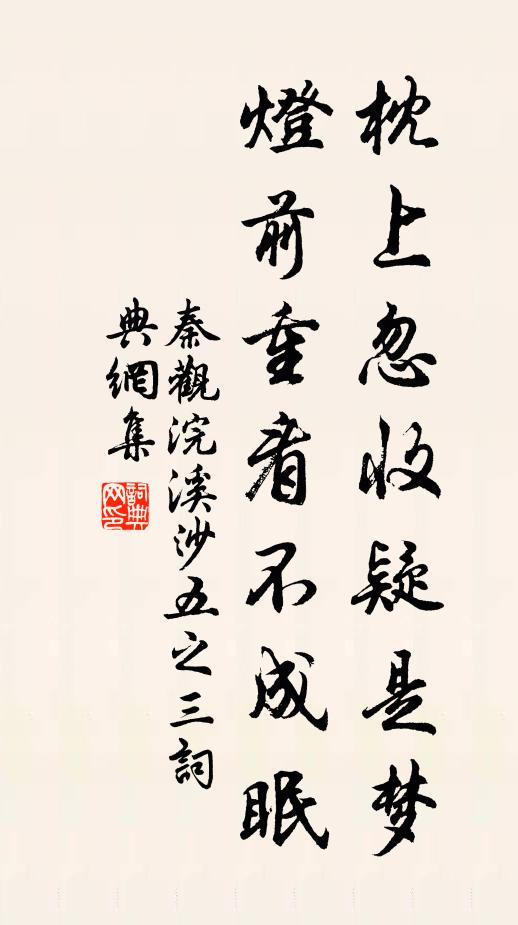 枕上忽收疑是梦
燈前重看不成眠
秦觀浣溪沙五之三詞
典網集
詞典
网印